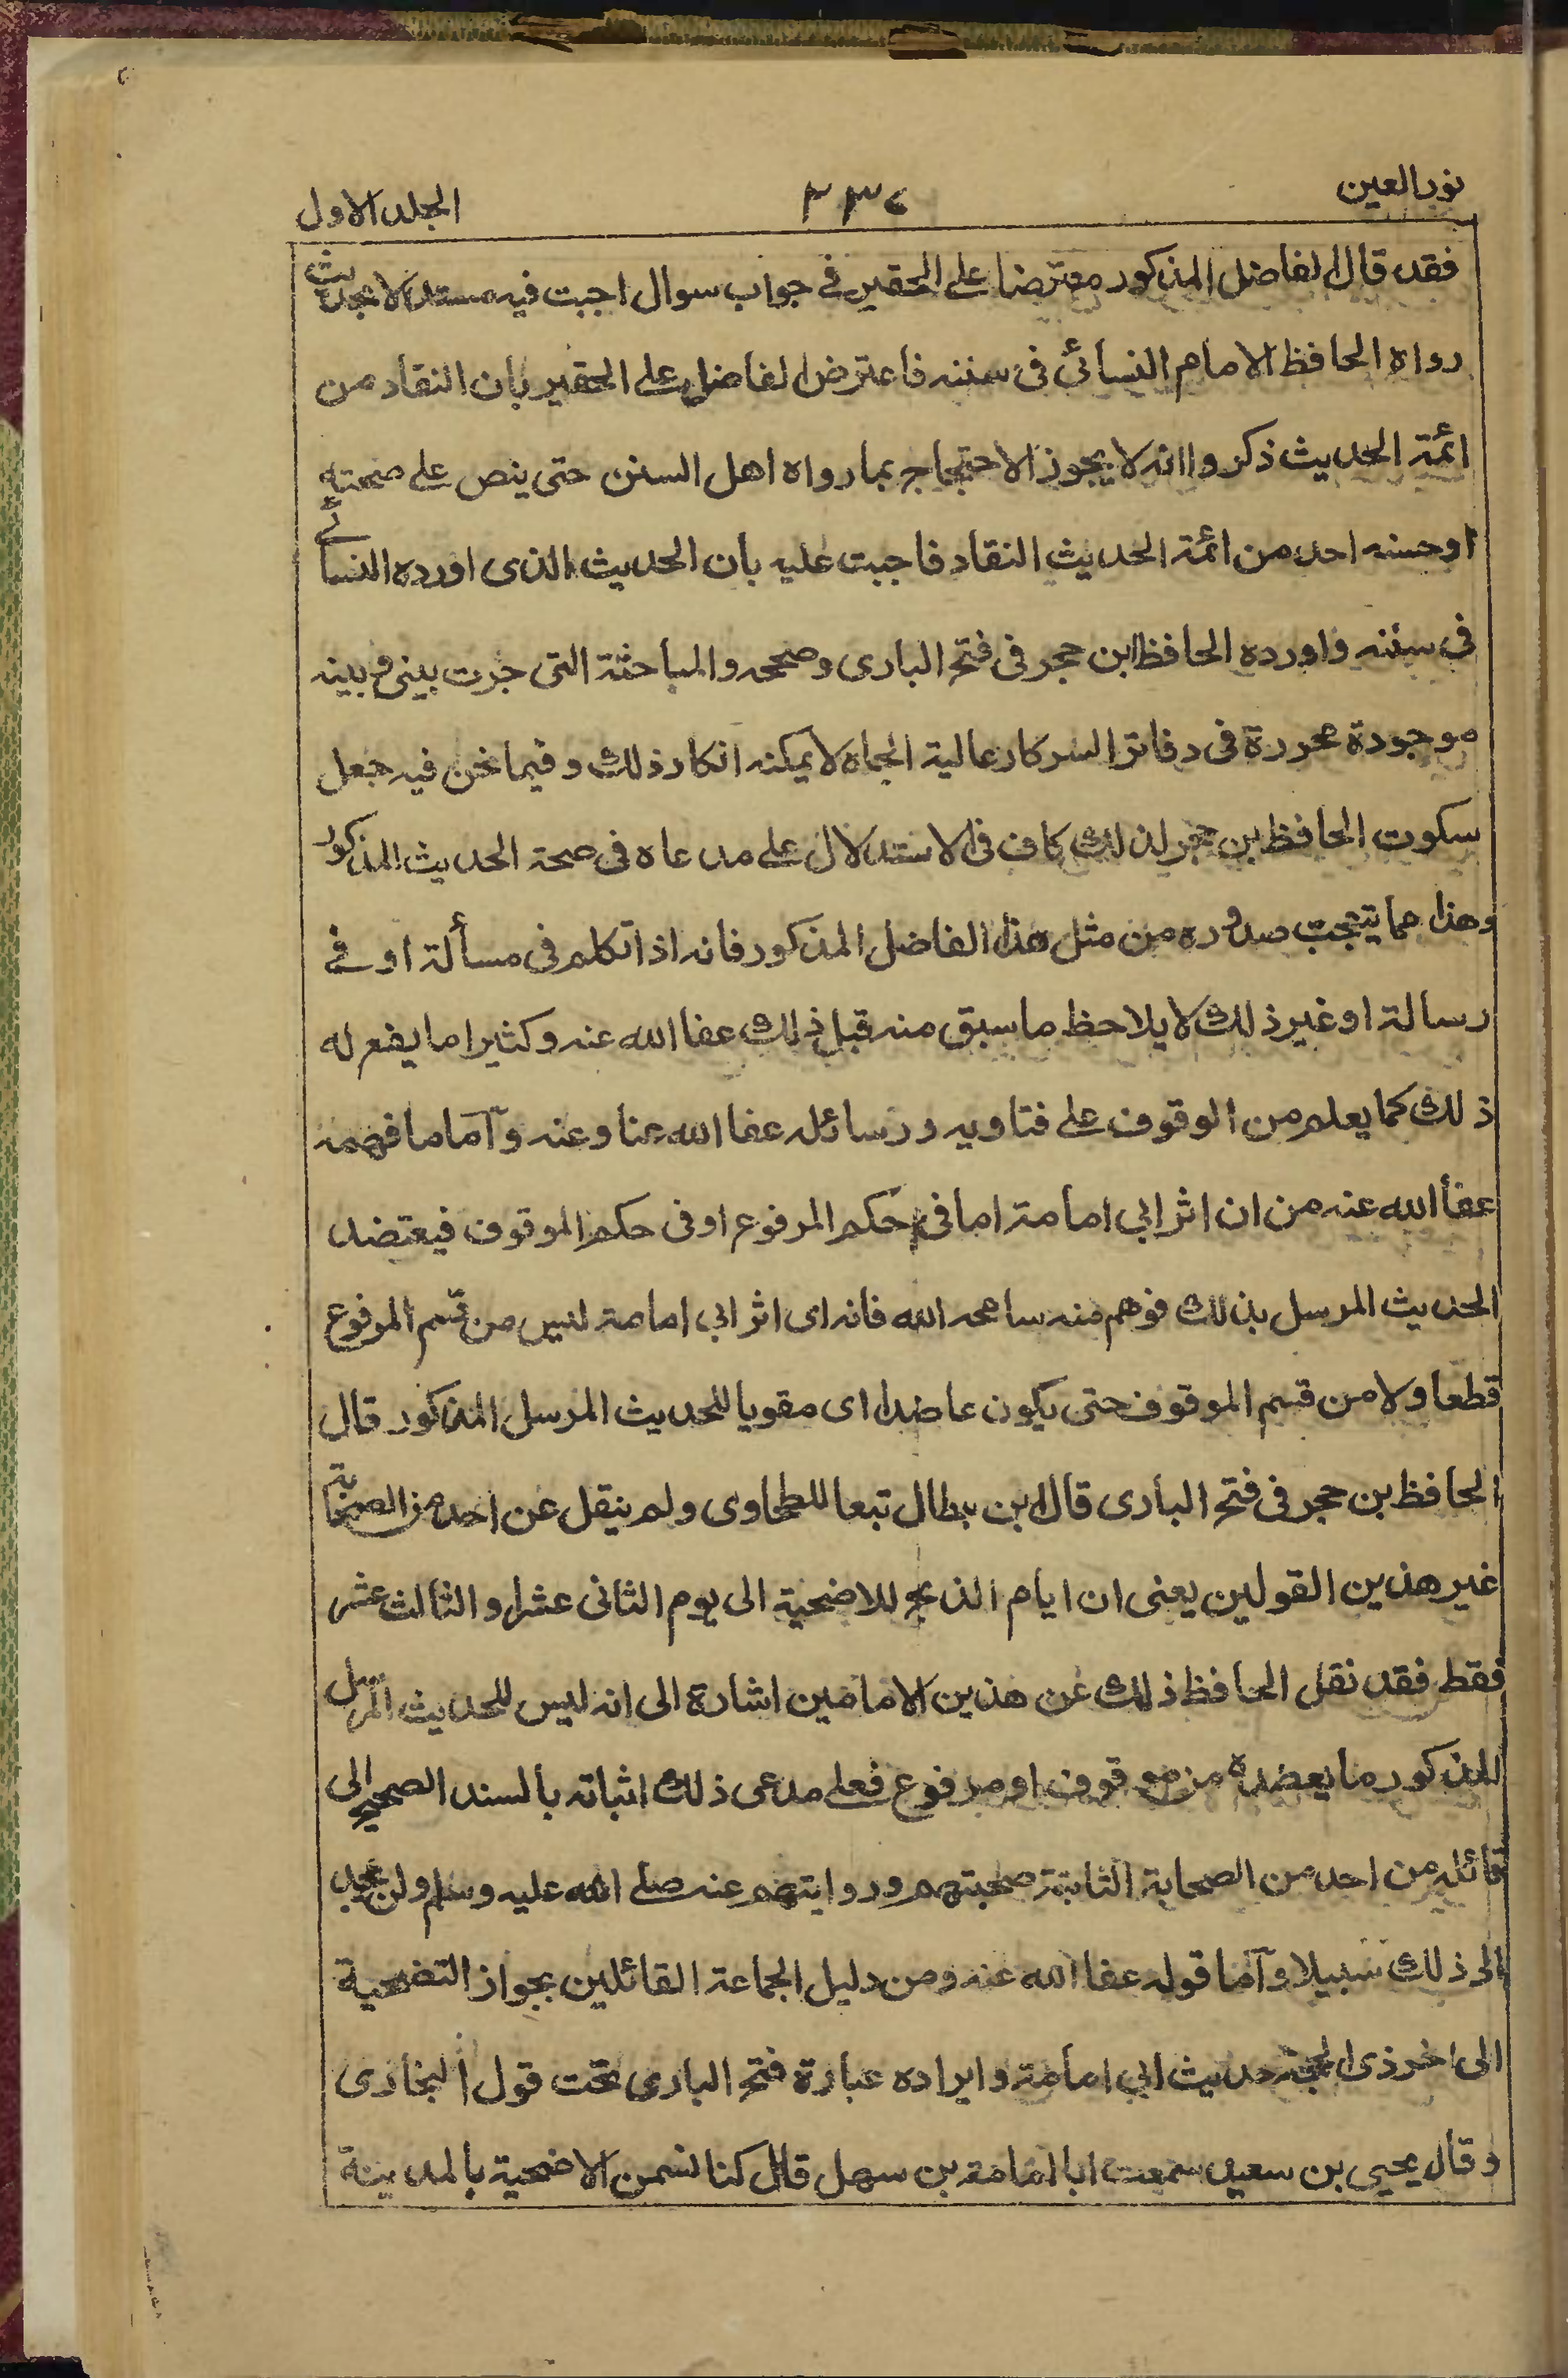 نور العين
٣٣٤
الجلد الاول
فقد قال الفاضل المذكور معترضا على الحقير في جواب سوال اجبت فيه مستدلا بحديث
رواه الحافظ الامام النسائى فى سننه فاعترض الفاضل على الحقير بان النقاد من
ائمة الحديث ذكروا انه لا يجوز الاحتجاج بما رواه اهل السنن حتى ينص على صحته
او حسنه احد من ائمة الحديث النقاد فاجبت عليه بان الحديث الذى اورده النسائے
فى سننه واورده الحافظ ابن حجر فى فتح البارى وصححه والمباحثة التى جرت بينى و بينه
موجودة محررة فى دفاتر السركار عالية الجاه لا يمكنه انكار ذلك وفيما نحن فيه جعل
سكوت الحافظ بن حجر لذلك كاف فى الاستدلال على مدعاه فى صحة الحديث المذكور
وهذا مما يتعجب صدوره من مثل هذا الفاضل المذكور فانه اذا تكلم فى مسألة او فے
رسالة او غير ذلك لا يلاحظ ما سبق منه قبل ذلك عفا الله عنه وكثيرا ما يقع له
ذلك كما يعلم من الوقوف على فتاويه ورسائله عفا الله عنا وعنه وآما ما فهمه
عفا الله عنه من ان اثر ابي امامة اما فى حكم المرفوع او فى حكم الموقوف فيعتضد
الحديث المرسل بذلك فوهم منه سامحه الله فانه اى اثر ابي امامة ليس من قسم المرفوع
قطعا ولا من قسم الموقوف حتى يكون عاضدا اى مقويا للحديث المرسل المذكور قال
الحافظ بن حجر فى فتح البارى قال ابن بطال تبعا للطحاوى ولم ينقل عن احد من الصحابة
غير هذين القولين يعنى ان ايام الذبح للاضحية الى يوم الثانى عشر او الثالث عشر
فقط فقد نقل الحافظ ذلك عن هذين الامامين اشارة الى انه ليس للحديث المرسل
المذكور ما يعضده من موقوف او مرفوع فعلى مدعى ذلك اثباته بالسند الصحيح الى
قائله من احد من الصحابة الثابتة صحبتهم وروايتهم عنه صلى الله عليه وسلم ولن يجد
الى ذلك سبيلا وآما قوله عفا الله عنه ومن دليل الجماعة القائلين بجواز التضحية
الى اخر ذى الحجة حديث ابي امامة وايراده عبارة فتح البارى تحت قول البخارى
وقال يحيى بن سعيد سمعت ابا امامة بن سهل قال كنا نسمن الاضحية بالمدينة